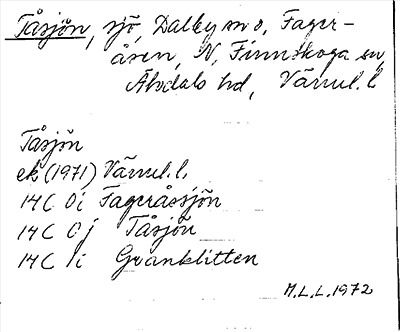 Tåsjön, sjö, Dalby sn o, Fager-
åsen, N, Finnskoga sn,
Älvdals hd, Värml. l
Tåsjön
ek (1971) Värml. l.
14C 0i Fageråssjön
14C 0j Tåsjön
14C 1i Granklitten
M.L.L. 1972